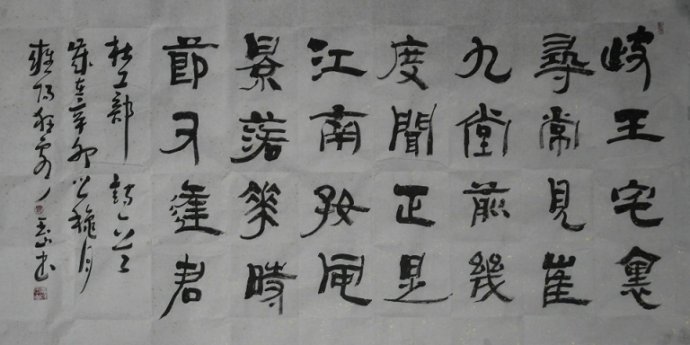 岐王宅裏
尋常見崔
九堂前幾
度聞正是
江南好風
景落花時
節又逢君
杜工部 詩一首
歲在辛卯之穐月